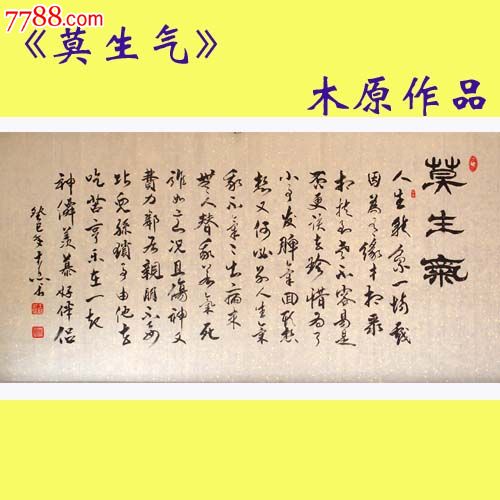 7788.com
《莫生气》
木原作品
莫生氣
人生就像一場戲
因為有緣才相聚
相扶到老不容易是
否更該去珍惜為了
小事發脾氣回頭想
想又何必別人生氣
我不氣氣出病來
無人替我若氣死
誰如意況且傷神又
費力鄰居親朋不要
比兒孫瑣事由他去
吃苦享樂在一起
神僊羨慕好伴侶
癸巳